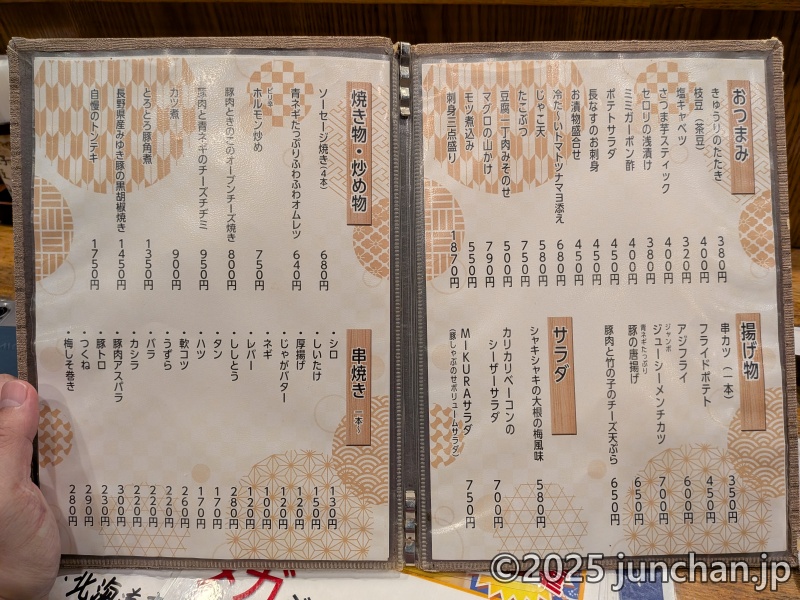 おつまみ
きゅうりのたたき 380円
枝豆(茶豆) 400円
塩キャベツ 320円
さつま芋スティック 400円
セロリの浅漬け 380円
ミミガーポン酢 400円
ポテトサラダ 450円
長なすのお刺身 450円
お漬物盛合せ 450円
冷た~いトマトツナマヨ添え 680円
じゃこ天 580円
たこぶつ 750円
豆腐一丁肉みそのせ 500円
マグロの山かけ 790円
モツ煮込み 550円
刺身三点盛り 1870円
揚げ物
串カツ(一本) 350円
フライドポテト 450円
アジフライ 600円
ジャンボ
ジューシーメンチカツ 700円
青ネギたっぷり
豚の唐揚げ 650円
豚肉と竹の子のチーズ天ぷら 650円
サラダ
シャキシャキの大根の梅風味 580円
カリカリベーコンの
シーザーサラダ 700円
MIKURAサラダ 750円
(豚しゃぶのせボリュームサラダ)
焼き物・炒め物
ソーセージ焼き(4本) 680円
青ネギたっぷりふわふわオムレツ 640円
ピリ辛
ホルモン炒め 750円
豚肉ときのこのオーブンチーズ焼き 800円
豚肉と青ネギのチーズチヂミ 950円
カツ煮 900円
とろとろ豚角煮 1350円
長野県産みゆき豚の黒胡椒焼き 1450円
自慢のトンテキ 1750円
串焼き 一本~
・シロ 130円
・しいたけ 150円
・厚揚げ 120円
・じゃがバター 120円
・ネギ 100円
・レバー 120円
・ししとう 280円
・タン 170円
・ハツ 170円
・軟コツ 260円
・うずら 220円
・バラ 220円
・カシラ 220円
・豚肉アスパラ 300円
・豚トロ 230円
・つくね 290円
・梅しそ巻き 280円
・北海
©2025 junchan.jp